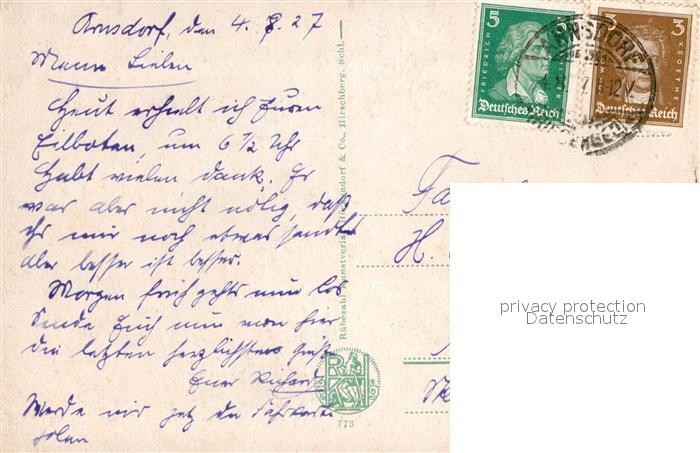 Arnsdorf, den 4. 7. 27
Meine Lieben
Heut erhielt ich Euren
Eilboten, um 6 1/2 Uhr
Habt vielen Dank. Es
war aber nicht nötig, daß
ihr mir noch etwas sandtet
aber besser ist besser.
Morgen früh gehts nun los
Sende Euch nun von hier
die letzten herzlichsten Grüße
Euer Richard
Werde mir jetzt die Fahrkarte
holen
Rübezahl Kunstverlag & Co., Hirschberg, Schl.
R K
773
5
FRIEDRICH
Deutsches Reich
3
GOETHE
Deutsches Reich
ARNSDORF
H.
privacy protection
Datenschutz